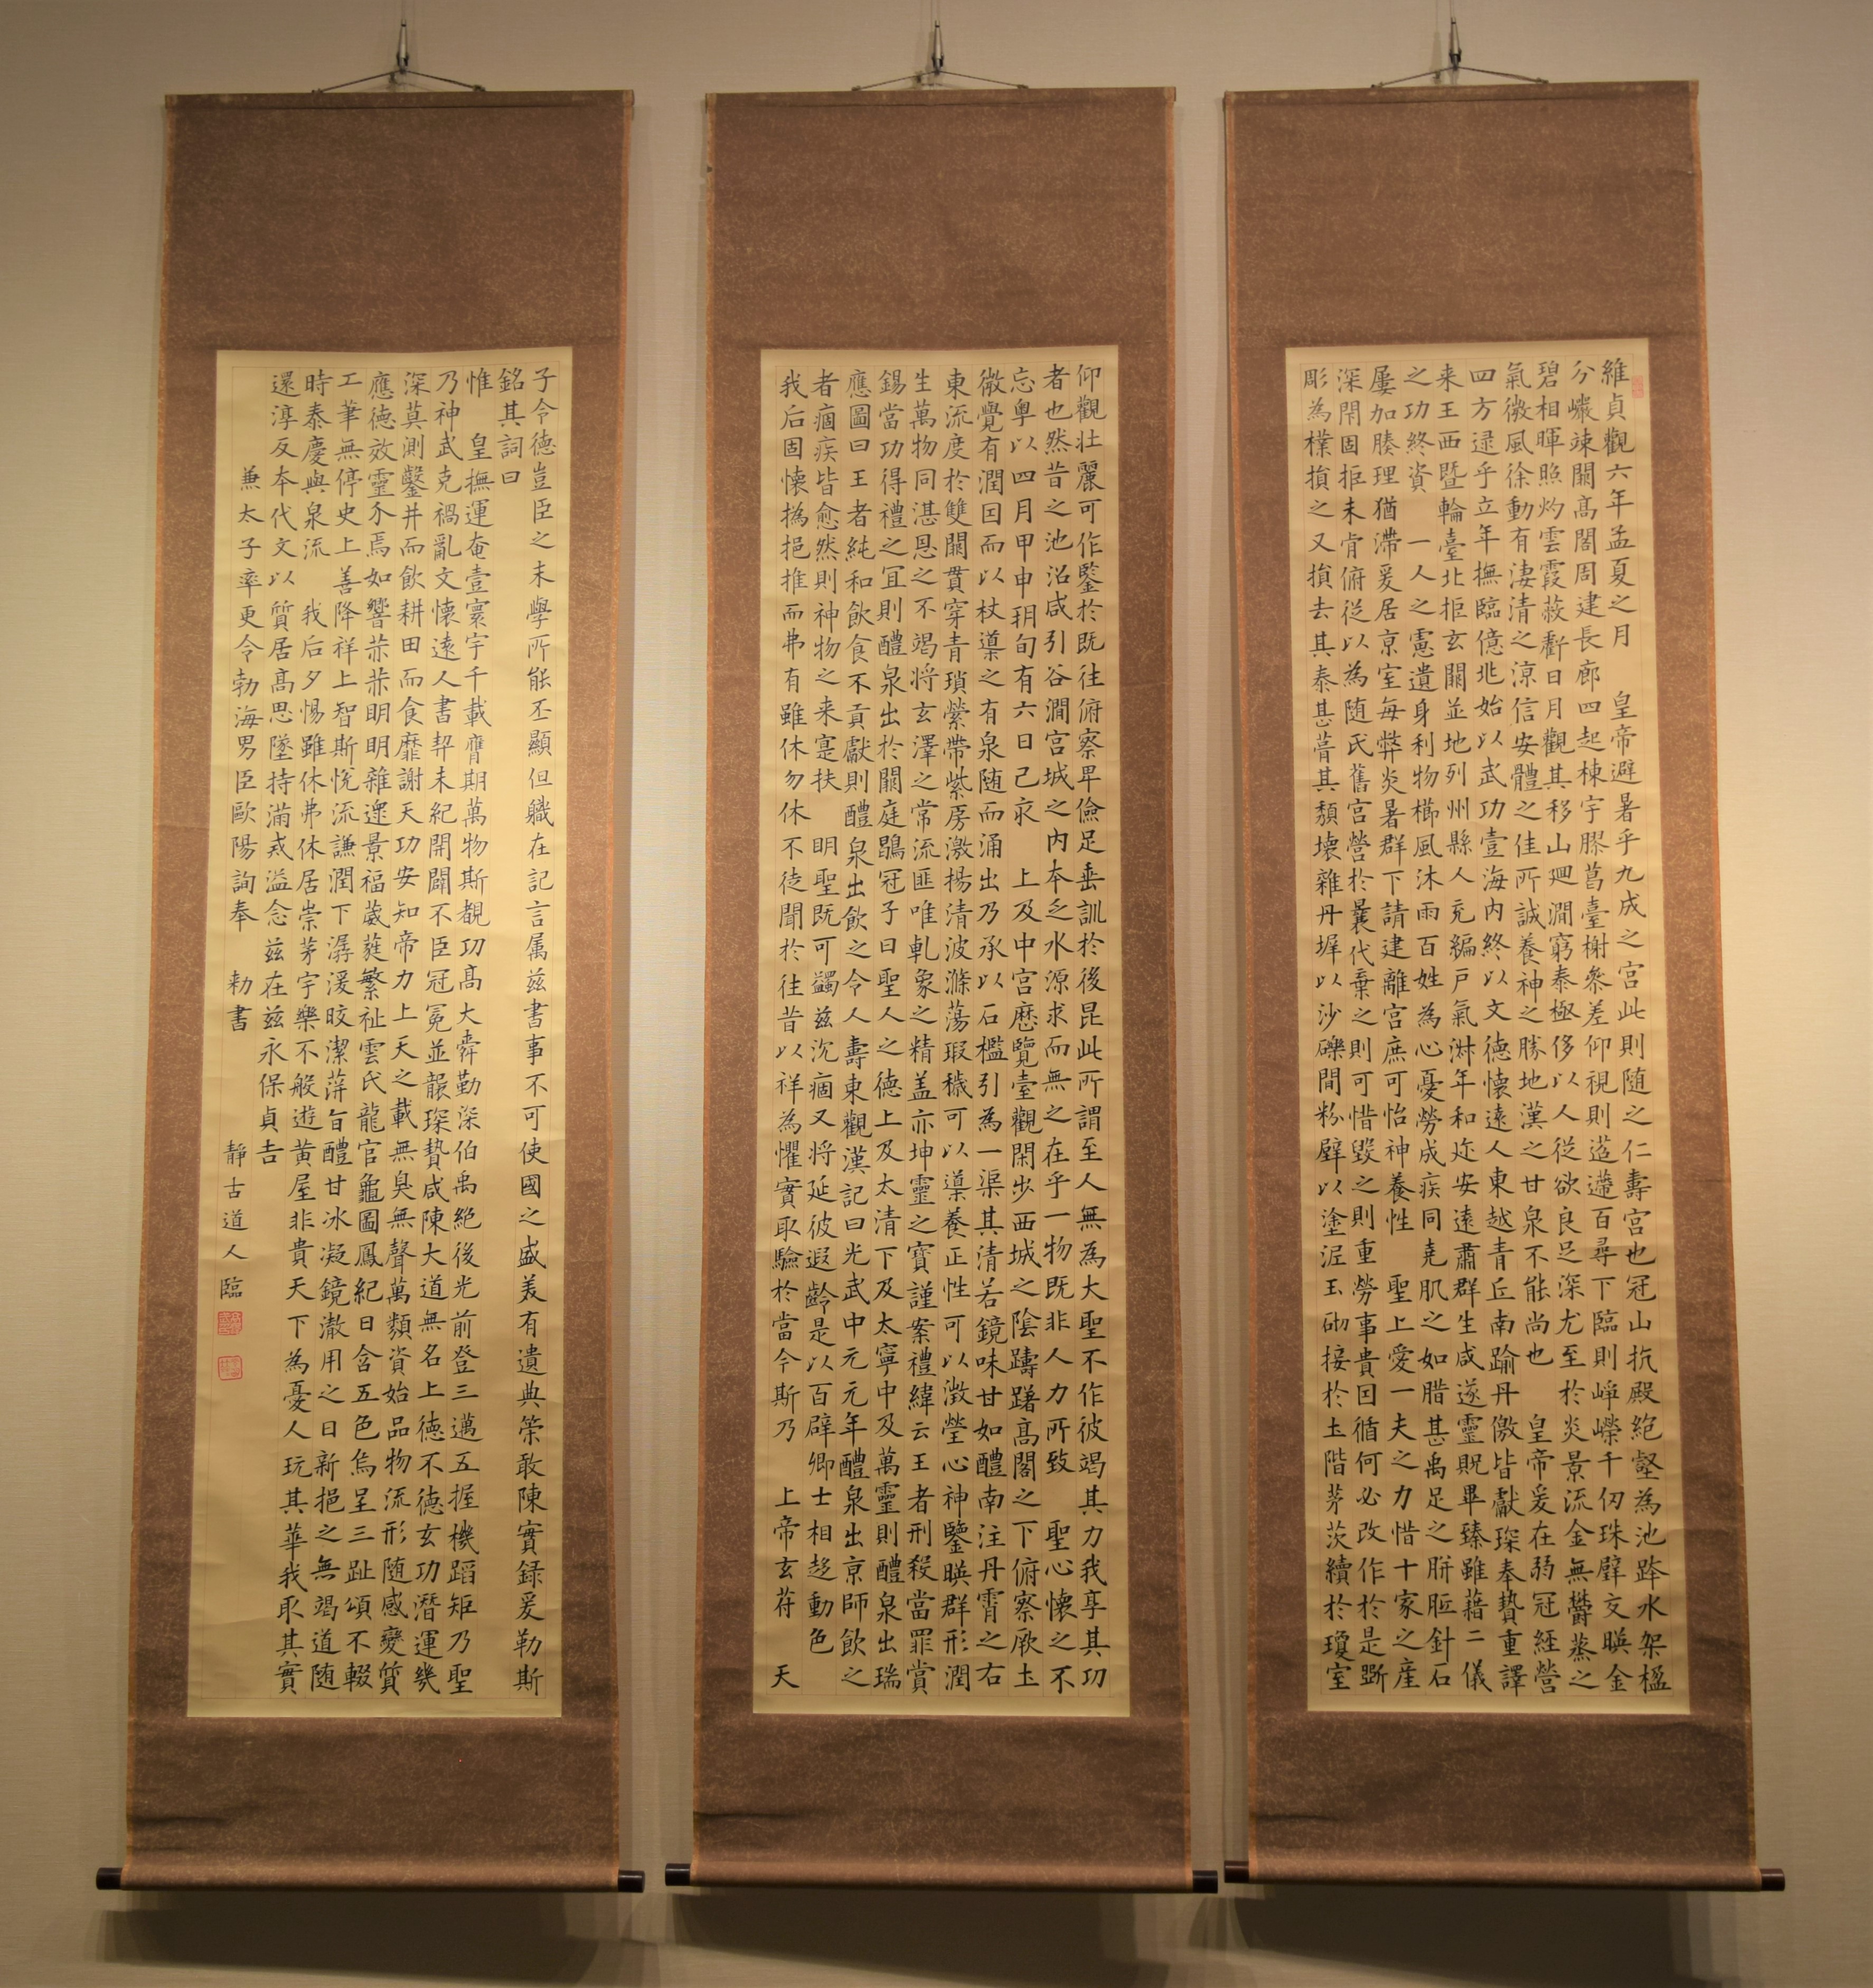 維貞觀六年孟夏之月　皇帝避暑乎九成之宮此則随之仁壽宮也冠山抗殿絕壑為池跨水架楹
分巖竦闕高閣周建長廊四起棟宇膠葛臺榭參差仰視則迢遰百尋下臨則崢嶸千仞珠璧交暎金
碧相暉照灼雲霞蔽虧日月觀其移山迴澗窮泰極侈以人從欲良足深尤至於炎景流金無欝蒸之
氣微風徐動有淒清之涼信安體之佳所誠養神之勝地漢之甘泉不能尚也　皇帝爰在弱冠經營
四方逮乎立年撫臨億兆始以武功壹海内終以文德懷遠人東越青丘南踰丹儌皆獻琛奉贄重譯
来王西暨輪臺北拒玄闕並地列州縣人充編戶氣淋年和迩安遠肅群生咸遂靈貺畢臻雖藉二儀
之功終資　一人之慮遺身利物櫛風沐雨百姓為心憂勞成疾同堯肌之如腊甚禹足之胼胝針石
屢加腠理猶滯爰居京室每弊炎暑群下請建離宮庶可怡神養性　聖上愛一夫之力惜十家之產
深閇固拒未肯俯從以為随氏舊宮營於曩代棄之則可惜毀之則重勞事貴因循何必改作於是斲
彫為樸損之又損去其泰甚葺其頹壞雜丹墀以沙礫間粉壁以塗泥玉砌接於土階茅茨續於瓊室
仰觀壯麗可作鑒於既往俯察卑儉足垂訓於後昆此所謂至人無為大聖不作彼竭其力我享其功
者也然昔之池沼咸引谷澗宮城之内本乏水源求而無之在乎一物既非人力所致　聖心懷之不
忘粵以四月甲申朔旬有六日己亥　上及中宮歷覽臺觀閑步西城之陰躊躇高閣之下俯察厥土
微覺有潤因而以杖導之有泉随而涌出乃承以石檻引為一渠其清若鏡味甘如醴南注丹霄之右
東流度於雙闕貫穿青瑣縈帶紫房激揚清波滌蕩瑕穢可以導養正性可以澂瑩心神鑒暎群形潤
生萬物同湛恩之不竭将玄澤之常流匪唯乹象之精盖亦坤靈之寶謹案禮緯云王者刑殺當罪賞
錫當功得禮之宜則醴泉出於闕庭鶡冠子曰聖人之德上及太清下及太寧中及萬靈則醴泉出瑞
應圖曰王者純和飲食不貢獻則醴泉出飲之令人壽東觀漢記曰光武中元元年醴泉出京師飲之
者痼疾皆愈然則神物之来寔扶　明聖既可蠲兹沉痼又将延彼遐齡是以百辟卿士相趍動色
我后固懷撝挹推而弗有雖休勿休不徒聞於往昔以祥為懼實取驗於當今斯乃　上帝玄苻　天
子令德豈臣之末學所能丕顯但職在記言属兹書事不可使國之盛美有遺典策敢陳實録爰勒斯
銘其詞曰
惟　皇撫運奄壹寰宇千載膺期萬物斯覩功高大舜勤深伯禹絕後光前登三邁五握機蹈矩乃聖
乃神武克禍亂文懷遠人書契未紀開闢不臣冠冕並襲琛贄咸陳大道無名上德不德玄功潛運幾
深莫測鑿井而飲耕田而食靡謝天功安知帝力上天之載無臭無聲萬類資始品物流形随感變質
應德效靈介焉如響赫赫明明雜遝景福葳蕤繁祉雲氏龍官龜圖鳳紀日含五色烏呈三趾頌不輟
工筆無停史上善降祥上智斯悅流謙潤下潺湲皎潔蓱旨醴甘冰凝鏡澈用之日新挹之無竭道随
時泰慶與泉流　我后夕惕雖休弗休居崇茅宇樂不般遊黄屋非貴天下為憂人玩其華我取其實
還淳反本代文以質居高思墜持滿戒溢念兹在兹永保貞吉
兼太子率更令勃海男臣歐陽詢奉　勑書　靜古道人臨